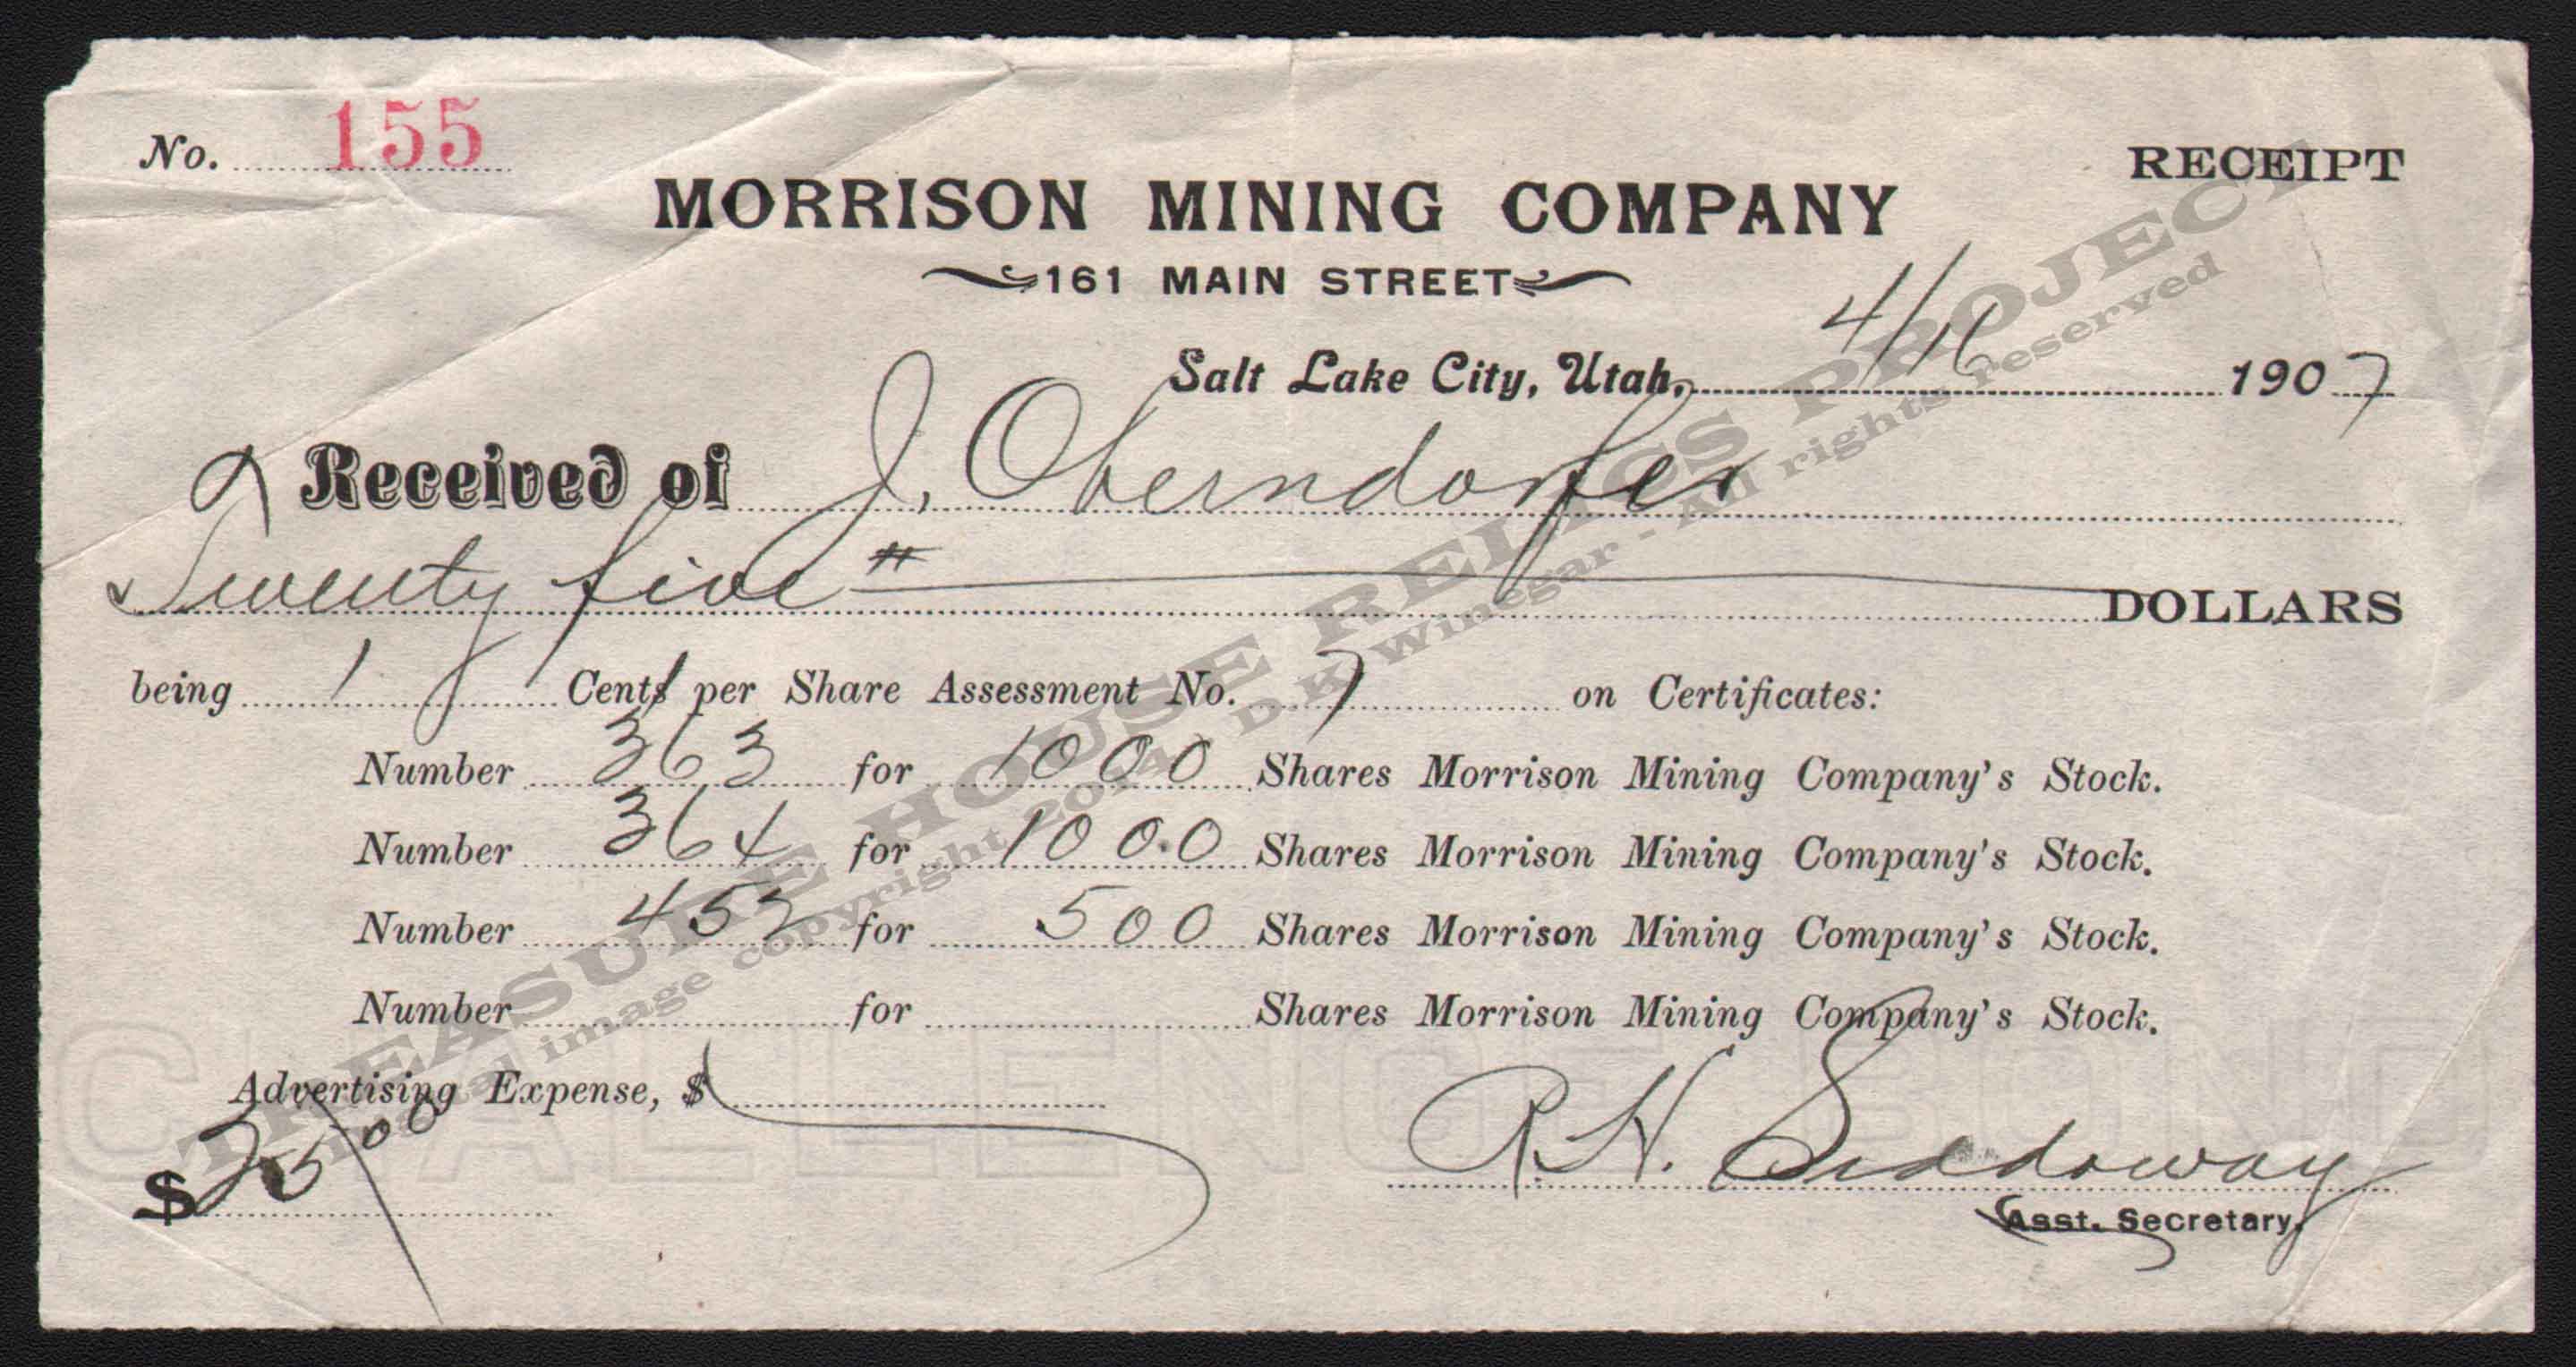 No. 155
RECEIPT
MORRISON MINING COMPANY
161 MAIN STREET
Salt Lake City, Utah, 4/16 1907
Received of J. Oberndorfer
Twenty five DOLLARS
being 1 Cent per Share Assessment No. 7 on Certificates:
Number 363 for 1000 Shares Morrison Mining Company's Stock.
Number 364 for 1000 Shares Morrison Mining Company's Stock.
Number 453 for 500 Shares Morrison Mining Company's Stock.
Number for Shares Morrison Mining Company's Stock.
Advertising Expense, $
$25.00
R. H. Siddoway
Asst. Secretary.
CHALLENGE BOND
TREASURE HOUSE RELICS PROJECT
Digital image copyright D K Winegar - All rights reserved